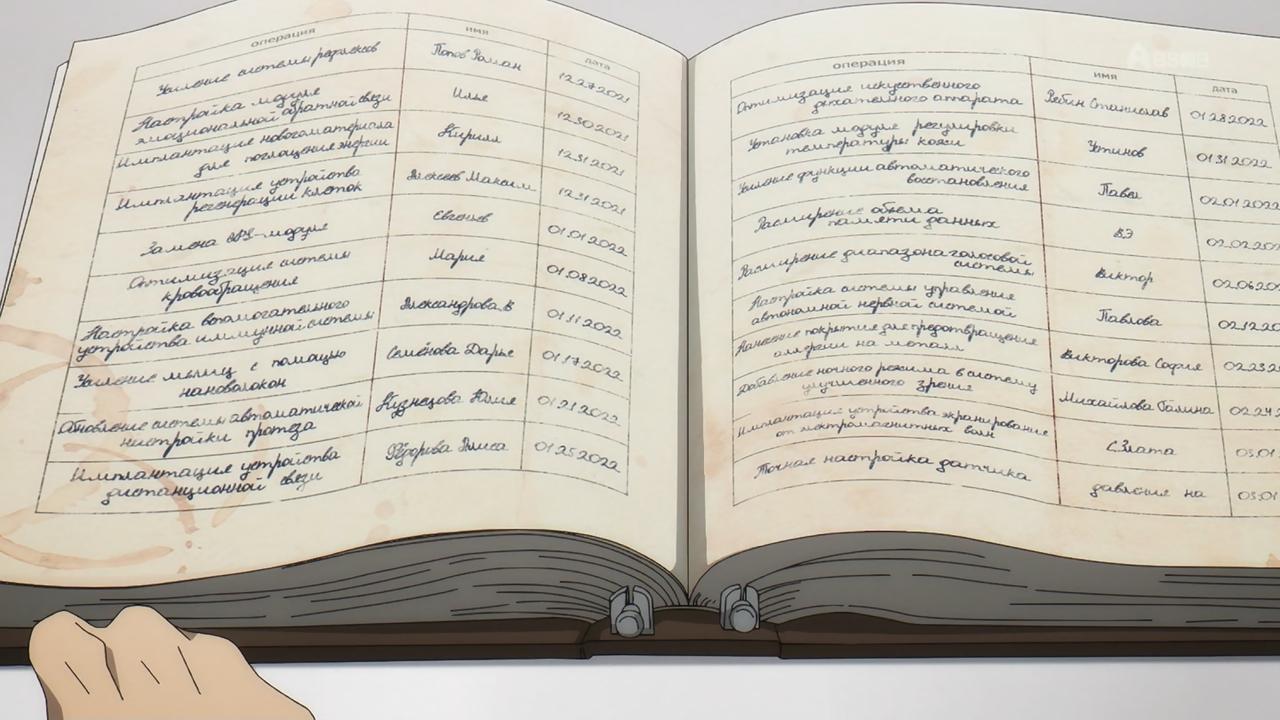 операция имя дата
Усиление системы рефлексов Попов Роман 12.27.2021
Настройка модуля
эмоциональной обратной связи Илья 12.30.2021
Имплантация нового материала
для поглощения энергии Кирилл 12.31.2021
Имплантация устройства
регенерации клеток Алексеев Максим 12.31.2021
Замена модуля Евгеньев 01.01.2022
Оптимизация системы
кровообращения Мария 01.08.2022
Настройка вспомогательного
устройства иммунной системы Александрова.В 01.11.2022
Усиление мышц с помощью
нановолокон Семёнова Дарья 01.17.2022
Обновление системы автоматической
настройки протеза Кузнецова Юлия 01.21.2022
Имплантация устройства
дистанционной связи Фёдорова Алиса 01.25.2022
операция имя дата
Оптимизация искуственного
дыхательного аппарата Рябин Станислав 01.28.2022
Установка модуля регулировки
температуры кожи Устинов 01.31.2022
Усиление функции автоматического
восстановления Павел 02.01.2022
Расширение объема
памяти данных ВЭ 02.02.202
Расширение диапазона голосовой
системы Виктор 02.06.202
Настройка системы управления
автономной нервной системой Павлова 02.12.202
Нанесение покрытия для предотвращения
аллергии на металл Викторова София 02.23.2
Добавление ночного режима в систему
улучшенного зрения Михайлова Галина 02.24.2
Имплантация устройства экранирования
от электромагнитных волн С.Злата 03.01
Точная настройка датчика давления на 03.01